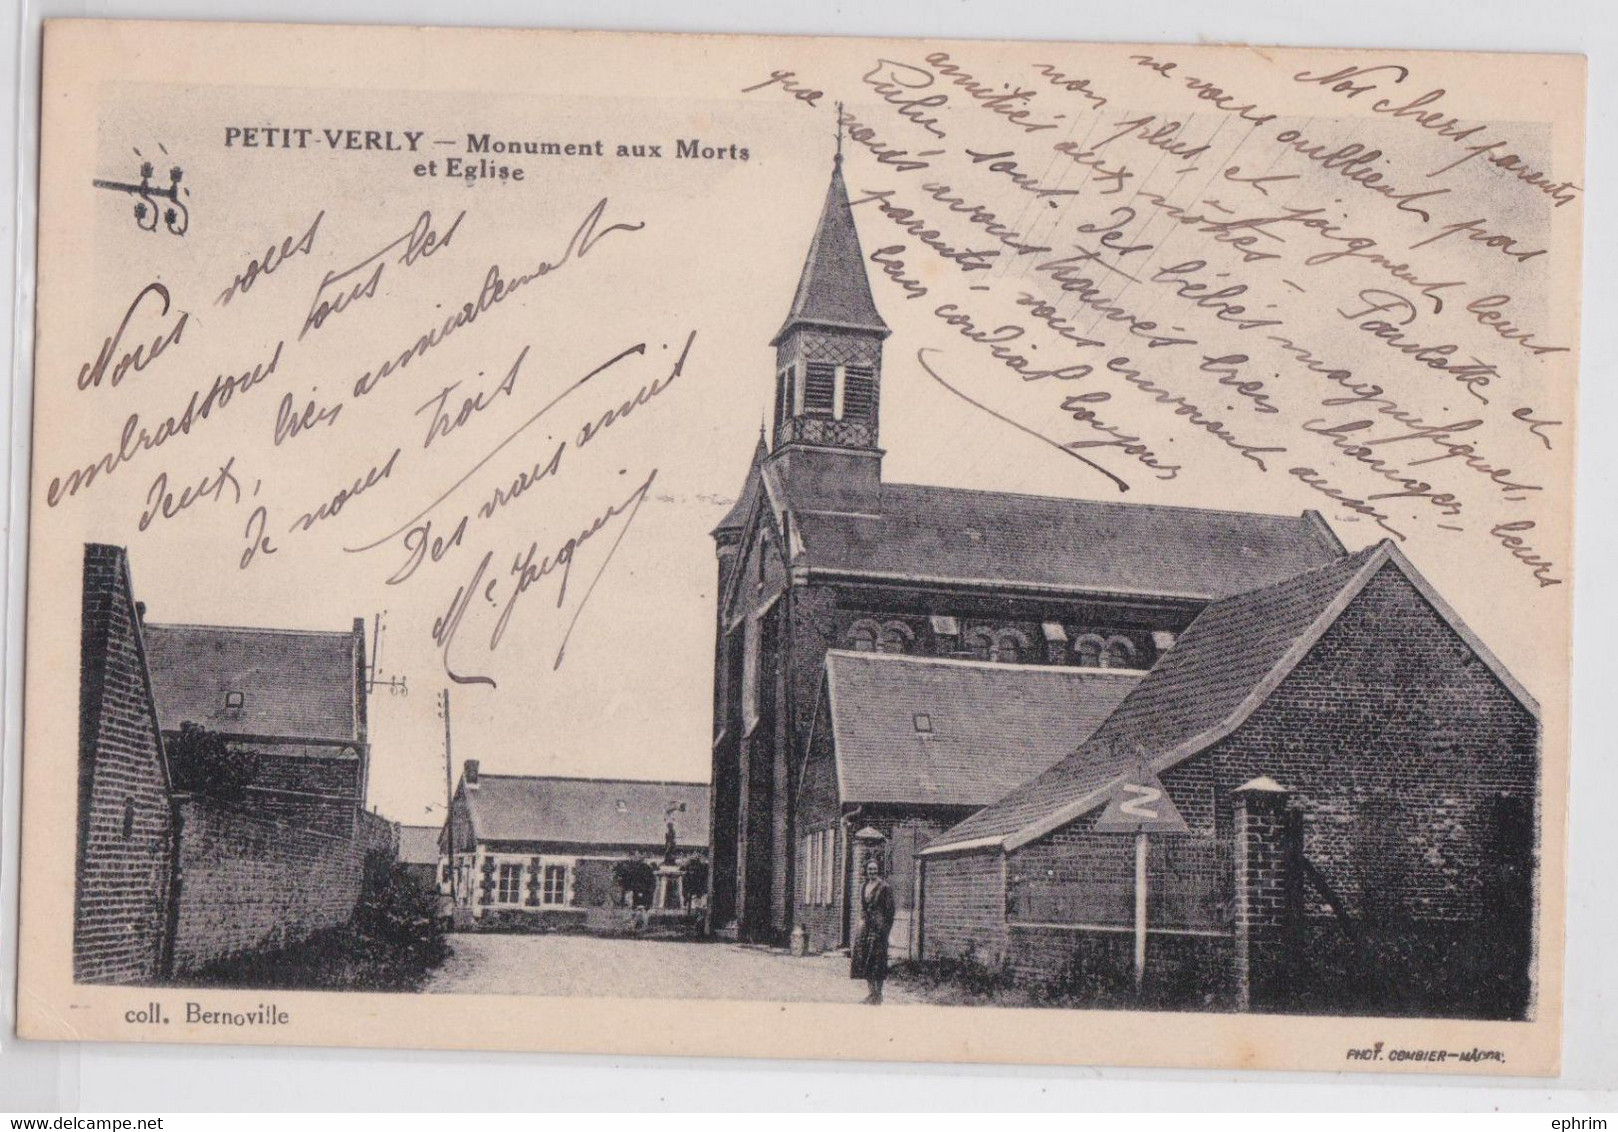 PETIT-VERLY — Monument aux Morts
et Eglise
Nous vous
embrassons tous les
deux, bien amicalement
de nous trois
Des vrais amis
Me Jacquin
Nos chers parents
ne vous oublient pas
non plus, et joignent leurs
amitiés aux nôtres - Paulette et
Lulu, sont des bébés magnifiques,
que nous avons trouvés bien changer, leurs
parents, vous envoient aussi
leur cordial bonjour
N
coll. Bernoville
PHOT. COMBIER—MÂCON.
delcampe.net
ephrim